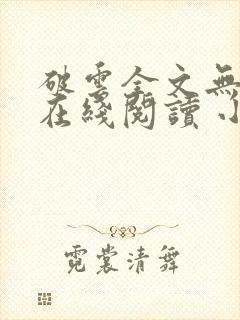 破雲全文無
在綫閱讀 小
霓裳清舞